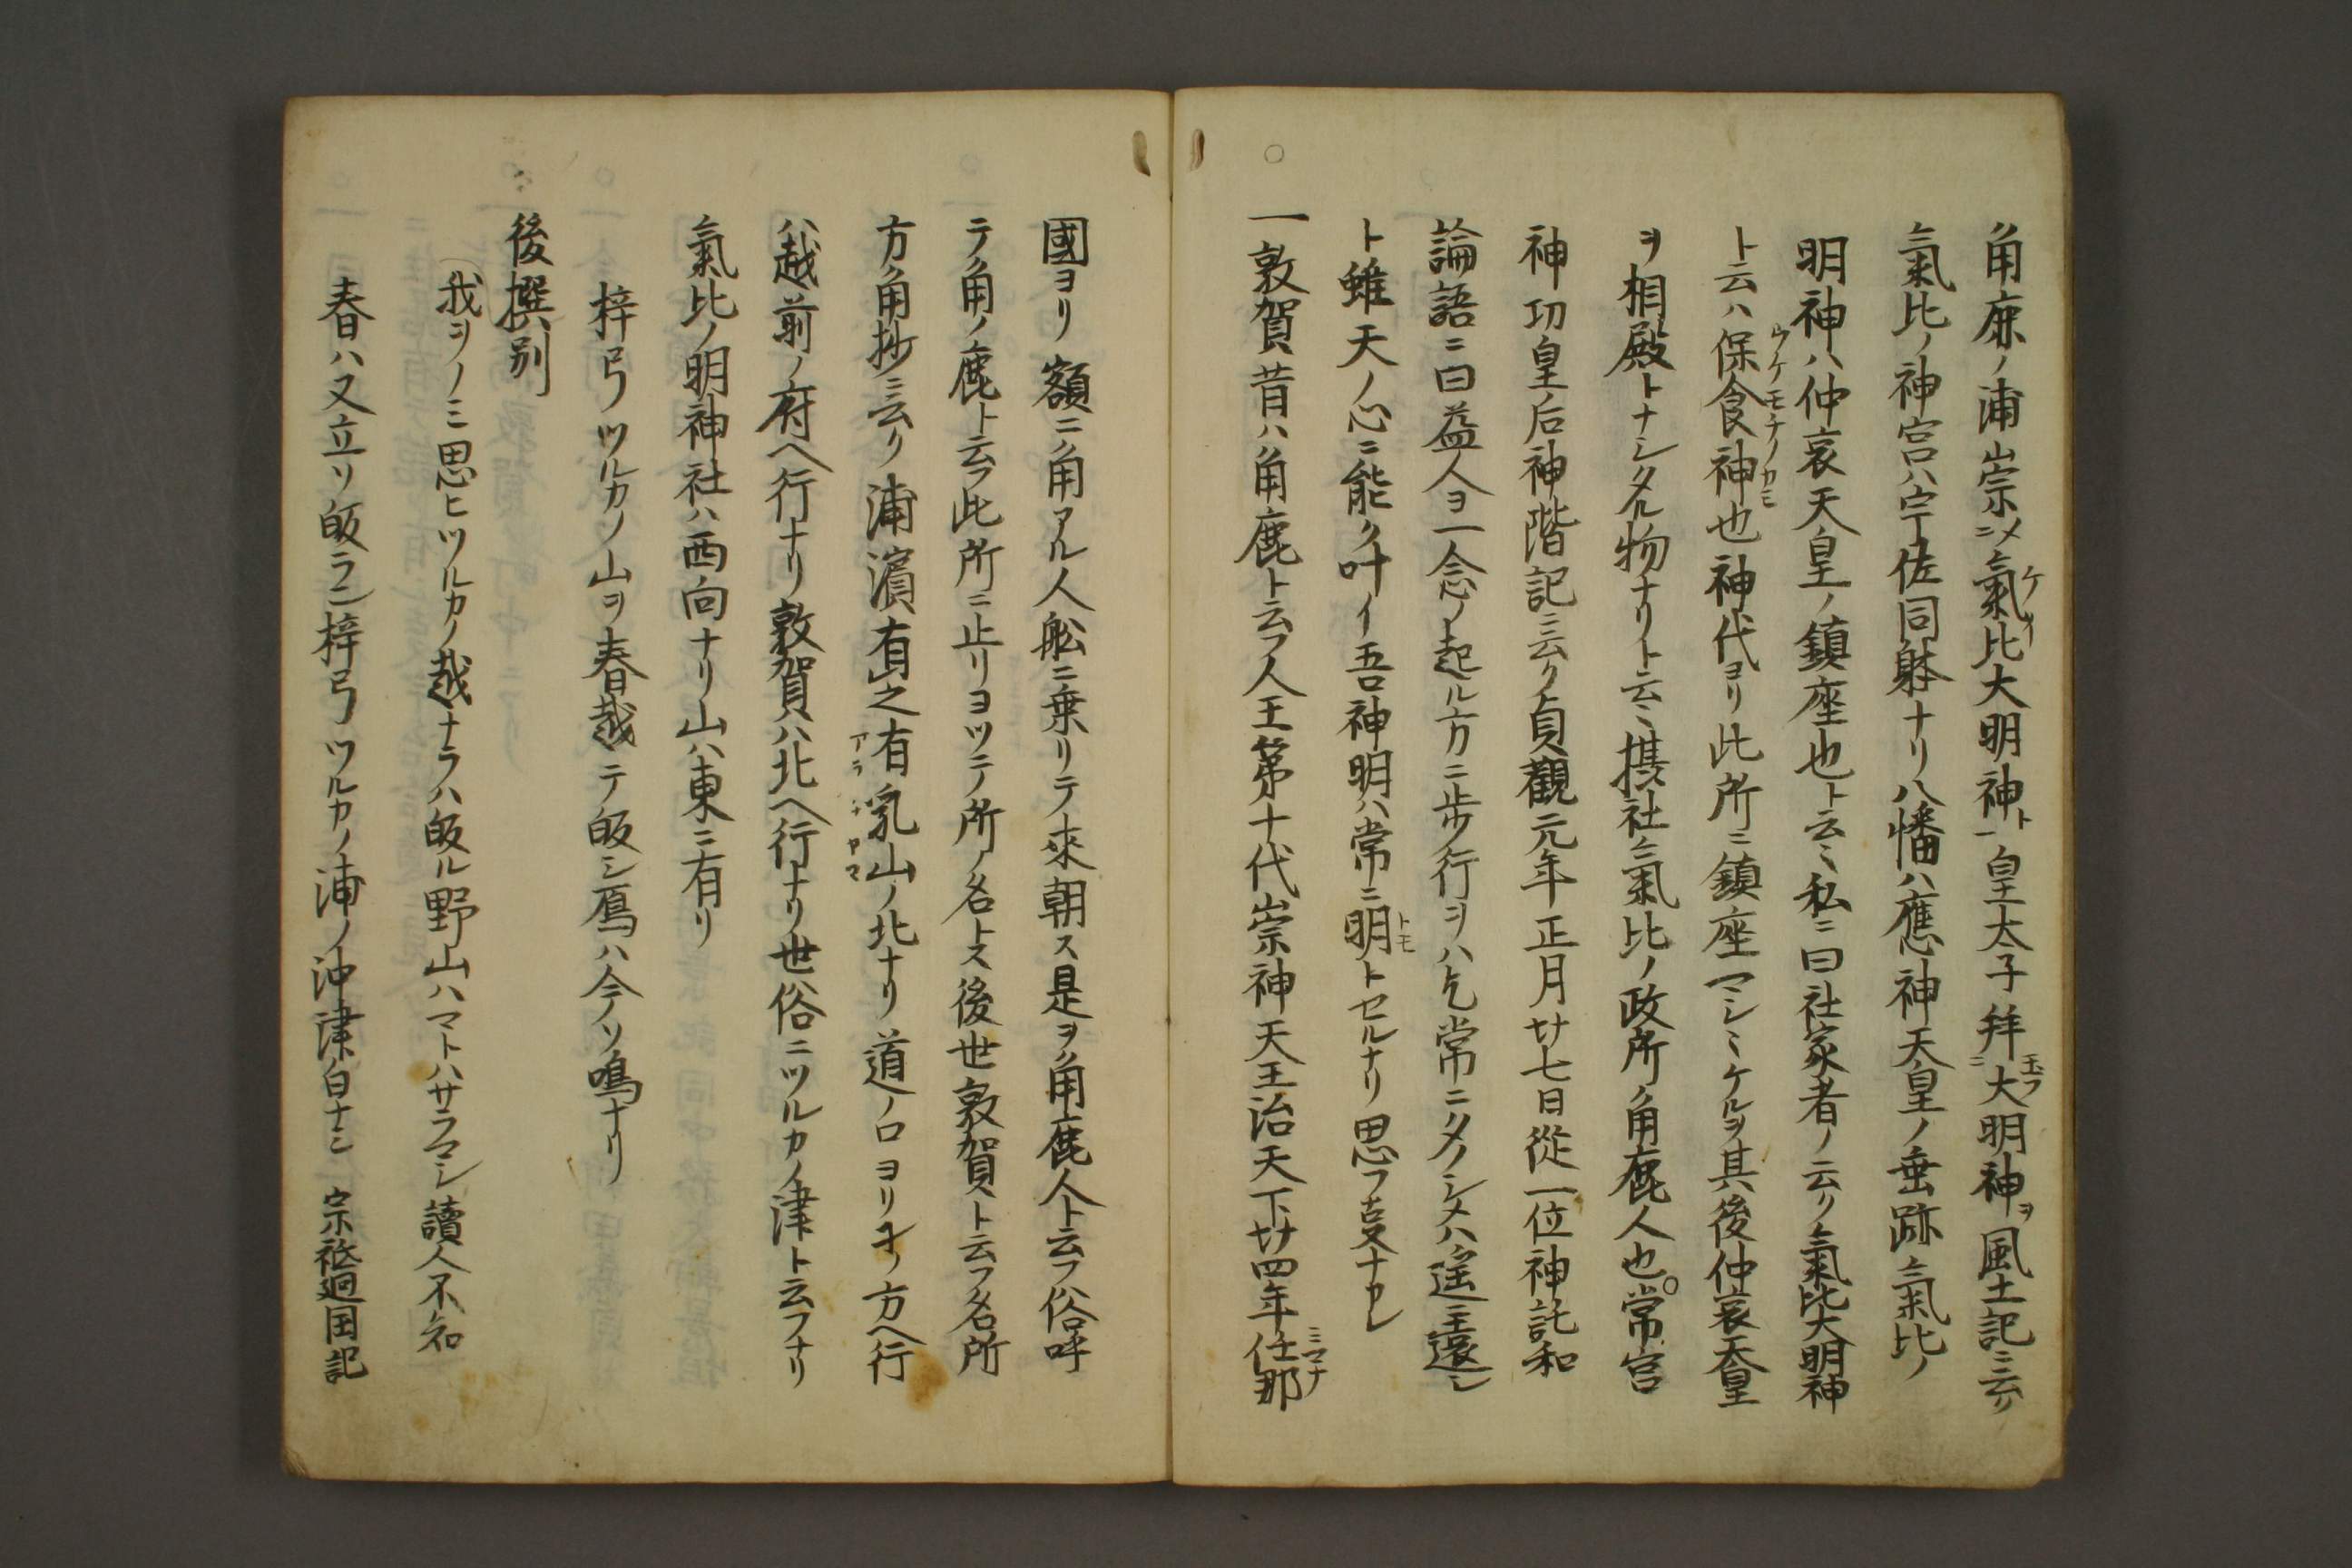 角鹿ノ浦ニ崇ニ〆氣比大明神ト一皇太子拜ニ玉フ大明神ヲ風土記ニ云ク
氣比ノ神宮ハ宇佐同躰ナリ八幡ハ應神天皇ノ垂跡氣比ノ
明神ハ仲哀天皇ノ鎮座也ト云ミ私ニ曰社家者ノ云ク氣比大明神
ト云ハ保食神也神代ヨリ此所ニ鎮座マシミケルヲ其後仲哀天皇
ヲ相殿トナシタル物ナリト云ミ攝社氣比ノ政所角鹿人也常宮
神功皇后神階記ニ云ク貞觀元年正月廿七日從一位神託和
論語ニ曰益人ヲ一念ノ起ル方ニ歩行ヲハ乞常ニタノシメハ遥ニ遠シ
ト雖天ノ心ニ能ク叶イ吾神明ハ常ニ明トセルナリ思フ支ナカレ
一敦賀昔ハ角鹿ト云フ人王第十代崇神天王治天下廿四年任那
國ヨリ額ニ角アル人舩ニ乗リテ來朝ス是ヲ角鹿人ト云フ俗呼
テ角ノ鹿ト云フ此所ニ止リヨツテ所ノ名トス後世敦賀ト云フ名所
方角抄ニ云ク浦濱有山之有乳山ノ北ナリ道ノ口ヨリヨノ方ヘ行
ハ越前ノ府ヘ行ナリ敦賀ハ北ヘ行ナリ世俗ニツルカノ津ト云フナリ
氣比ノ明神社ハ西向ナリ山ハ東ニ有リ
梓弓ツルカノ山ヲ春越テ皈シ鴈ハ今ソ鳴ナリ
後撰別
我ヲノミ思ヒツルカノ越ナラハ皈ル野山ハマトハサラマシ 讀人不知
春ハ又立リ皈ラン梓弓ツルカノ浦ノ沖津白ナミ 宗祗廻国記